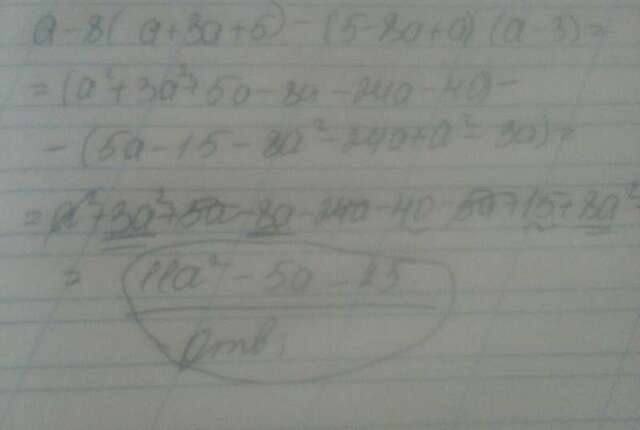 a-8(a+3a+5)-(5-8a+a)(a-3)=
=(a²+3a²+5a-8a-24a-40)-
-(5a-15-8a²-24a+a²-3a)=
=a²+3a²+5a-8a-24a-40-5a+15+8a²
= 11a²-5a-25
Отв.